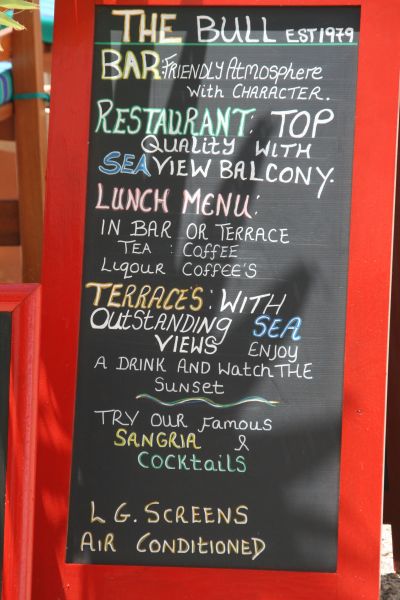 THE BULL EST 1979
BAR: FRIENDLY Atmosphere
with CHARACTER.
RESTAURANT: TOP
QUALITY WITH
SEA VIEW BALCONY.
LUNCH MENU:
IN BAR OR TERRACE
TEA : COFFEE
LIQOUR COFFEE'S
TERRACE'S: WITH
OUTSTANDING SEA
VIEWS ENJOY
A DRINK AND WATCH THE
SUNSET
TRY OUR FAMOUS
SANGRIA &
COCKTAILS
L G. SCREENS
AIR CONDITIONED